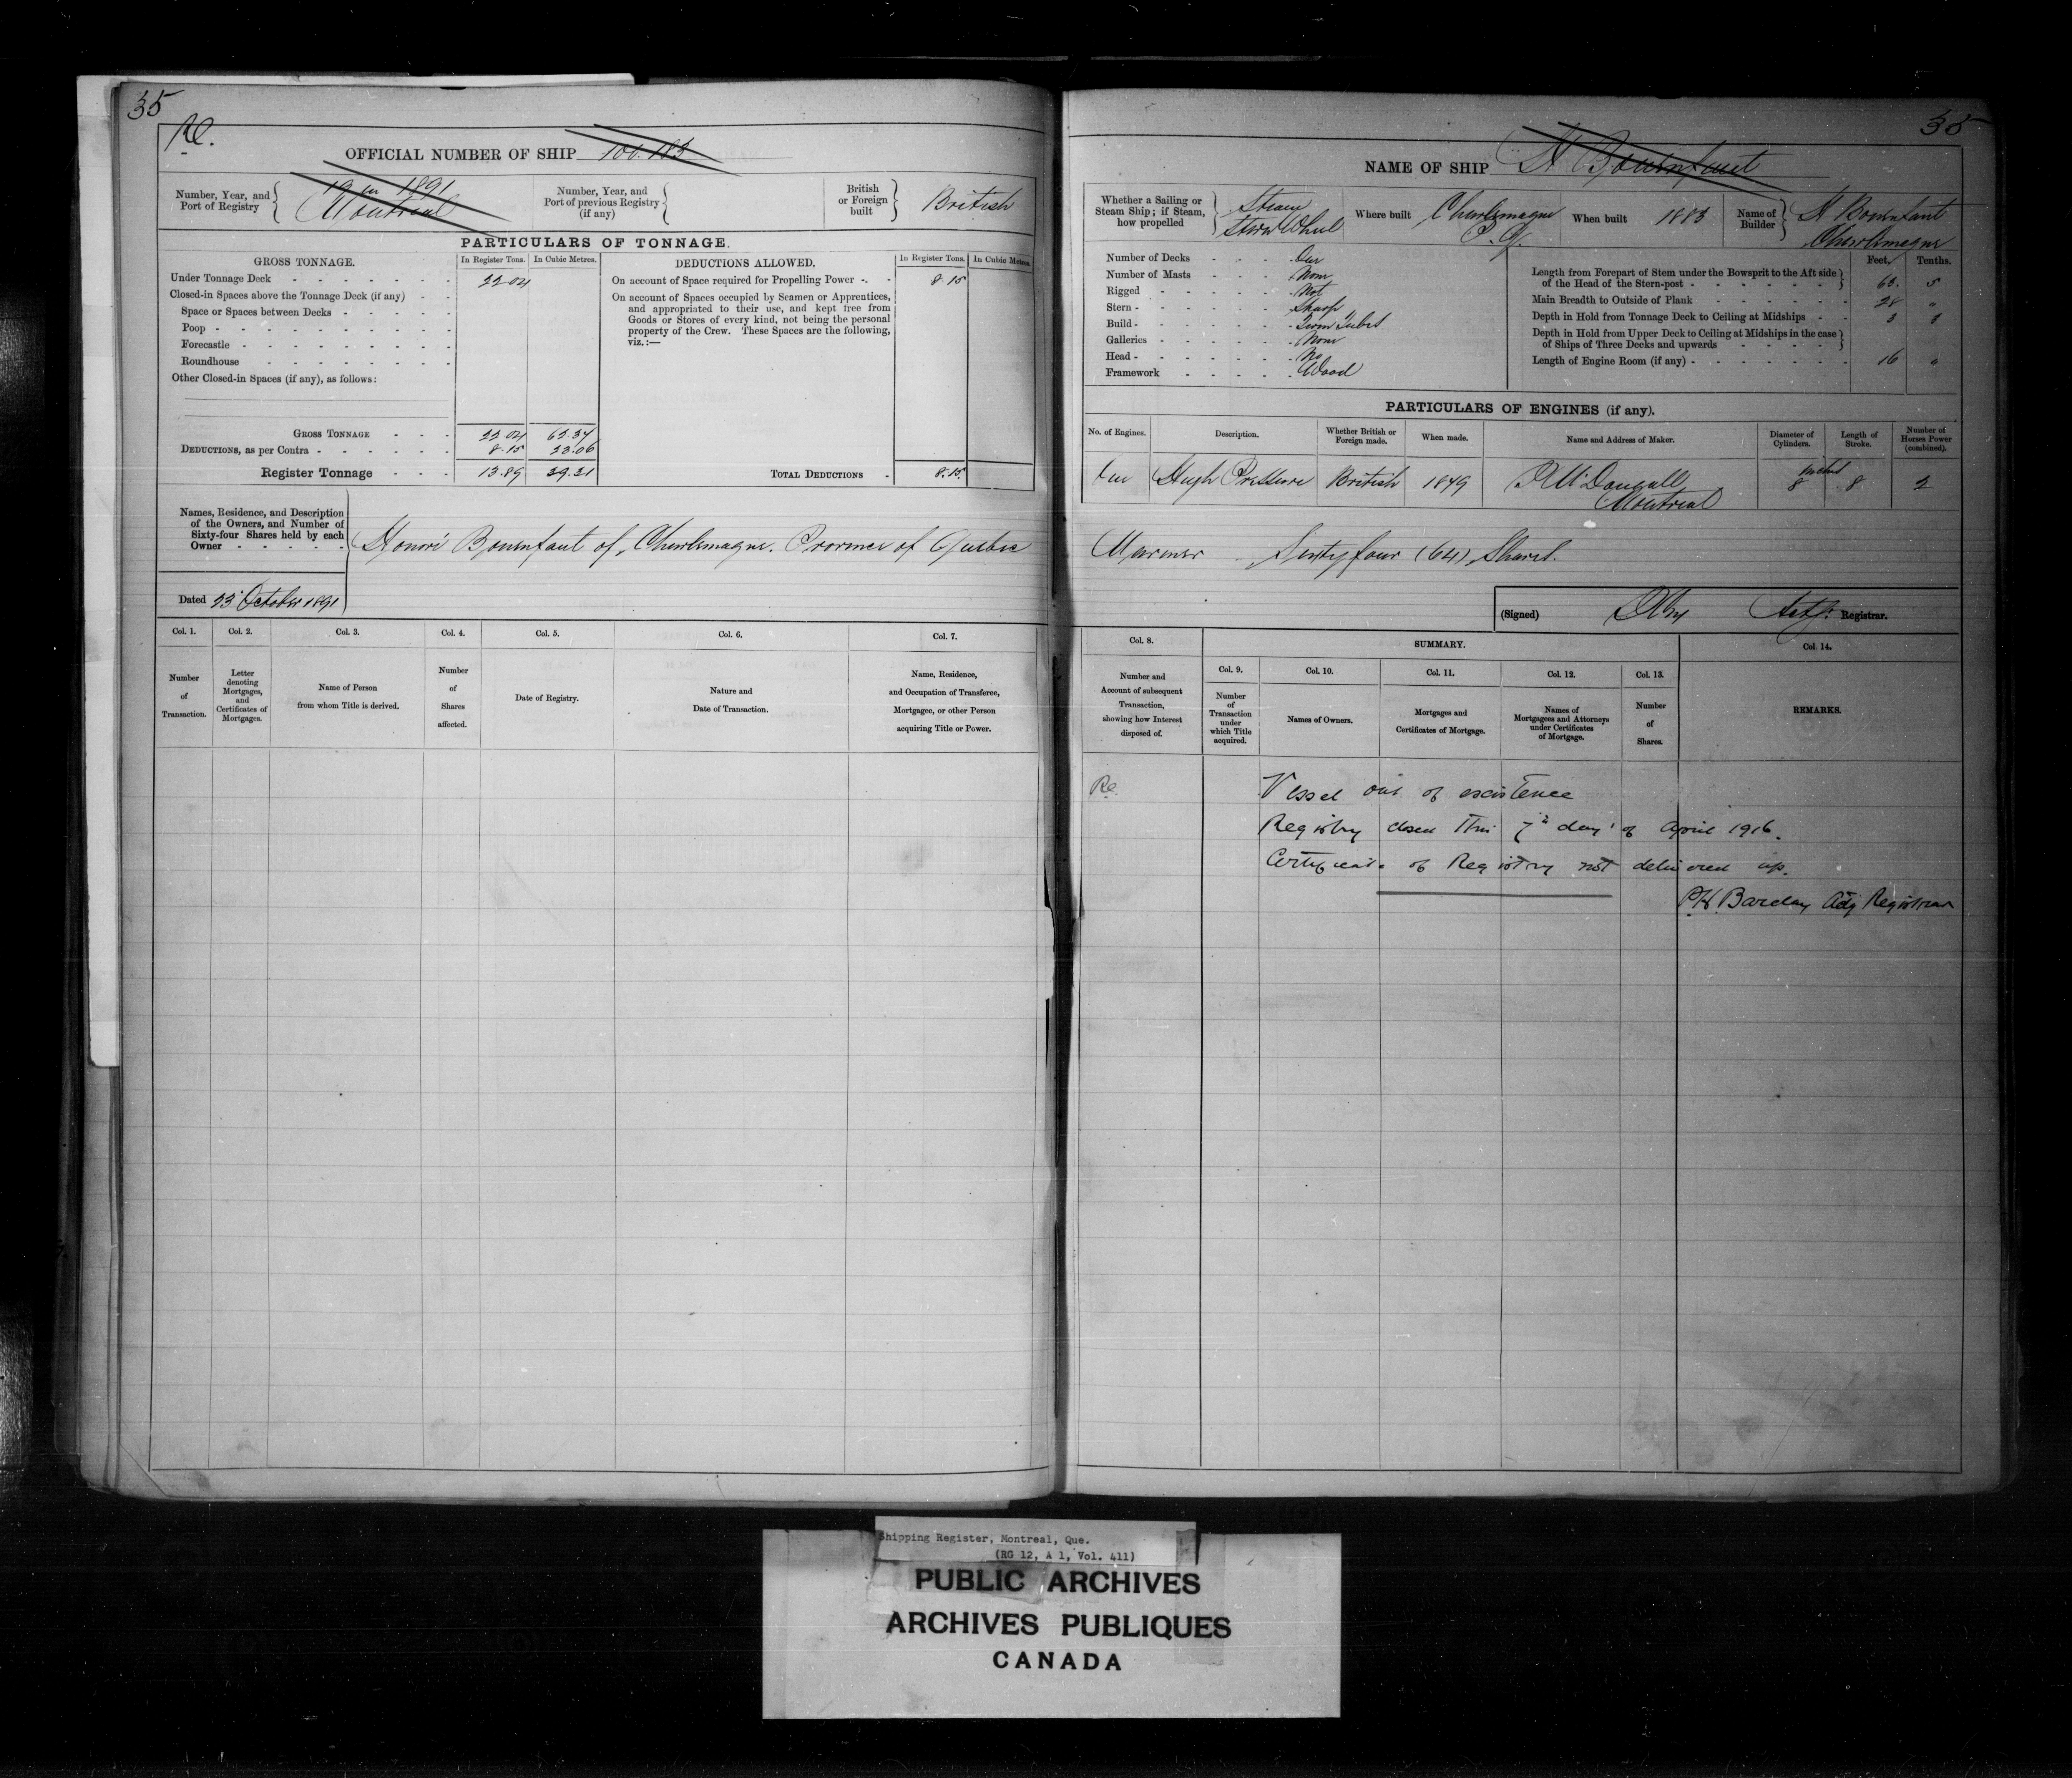 35
Re.
OFFICIAL NUMBER OF SHIP 100.183
Number, Year, and Port of Registry
19 in 1891
Montreal
Number, Year, and Port of previous Registry (if any)
British or Foreign built
British
PARTICULARS OF TONNAGE.
GROSS TONNAGE.
In Register Tons.
In Cubic Metres.
Under Tonnage Deck 22.04
Closed-in Spaces above the Tonnage Deck (if any)
Space or Spaces between Decks
Poop
Forecastle
Roundhouse
Other Closed-in Spaces (if any), as follows:
GROSS TONNAGE 22.04 62.37
DEDUCTIONS, as per Contra 8.15 23.06
Register Tonnage 13.89 39.31
DEDUCTIONS ALLOWED.
In Register Tons.
In Cubic Metres.
On account of Space required for Propelling Power 8.15
On account of Spaces occupied by Seamen or Apprentices,
and appropriated to their use, and kept free from
Goods or Stores of every kind, not being the personal
property of the Crew. These Spaces are the following,
viz.:—
TOTAL DEDUCTIONS 8.15
Names, Residence, and Description
of the Owners, and Number of
Sixty-four Shares held by each
Owner
Honoré Bonenfant of Charlemagne. Province of Quebec
Dated 23 October 1891
Col. 1.
Number of Transaction.
Col. 2.
Letter denoting Mortgages, and Certificates of Mortgages.
Col. 3.
Name of Person from whom Title is derived.
Col. 4.
Number of Shares affected.
Col. 5.
Date of Registry.
Col. 6.
Nature and Date of Transaction.
Col. 7.
Name, Residence, and Occupation of Transferee, Mortgagee, or other Person acquiring Title or Power.
35
NAME OF SHIP H Bonenfant
Whether a Sailing or Steam Ship; if Steam, how propelled
Steam
Stern Wheel
Where built
Charlemagne
P. Q.
When built 1883
Name of Builder
H Bonenfant
Charlemagne
Number of Decks One
Number of Masts None
Rigged Not
Stern Sharp
Build
Galleries None
Head No
Framework Wood
Feet. Tenths.
Length from Forepart of Stem under the Bowsprit to the Aft side
of the Head of the Stern-post 5
Main Breadth to Outside of Plank 28 "
Depth in Hold from Tonnage Deck to Ceiling at Midships 3
Depth in Hold from Upper Deck to Ceiling at Midships in the case
of Ships of Three Decks and upwards
Length of Engine Room (if any) 16 "
PARTICULARS OF ENGINES (if any).
No. of Engines.
Description.
Whether British or Foreign made.
When made.
Name and Address of Maker.
Diameter of Cylinders.
Length of Stroke.
Number of Horses Power (combined).
One High Pressure British 1849 McDougall 8 inches 8 2
Montreal
Mariner Sixty four (64) Shares.
(Signed) Actg. Registrar.
Col. 8.
Number and Account of subsequent Transaction, showing how Interest disposed of.
SUMMARY.
Col. 9.
Number of Transaction under which Title acquired.
Col. 10.
Names of Owners.
Col. 11.
Mortgages and Certificates of Mortgage.
Col. 12.
Names of Mortgagees and Attorneys under Certificates of Mortgage.
Col. 13.
Number of Shares.
Col. 14.
REMARKS.
Re.
Vessel out of existence
Registry closed this 7th day of April 1916.
Certificate of Registry not delivered up.
P.H. Barclay Actg Registrar
Shipping Register, Montreal, Que.
(RG 12, A 1, Vol. 411)
PUBLIC ARCHIVES
ARCHIVES PUBLIQUES
CANADA